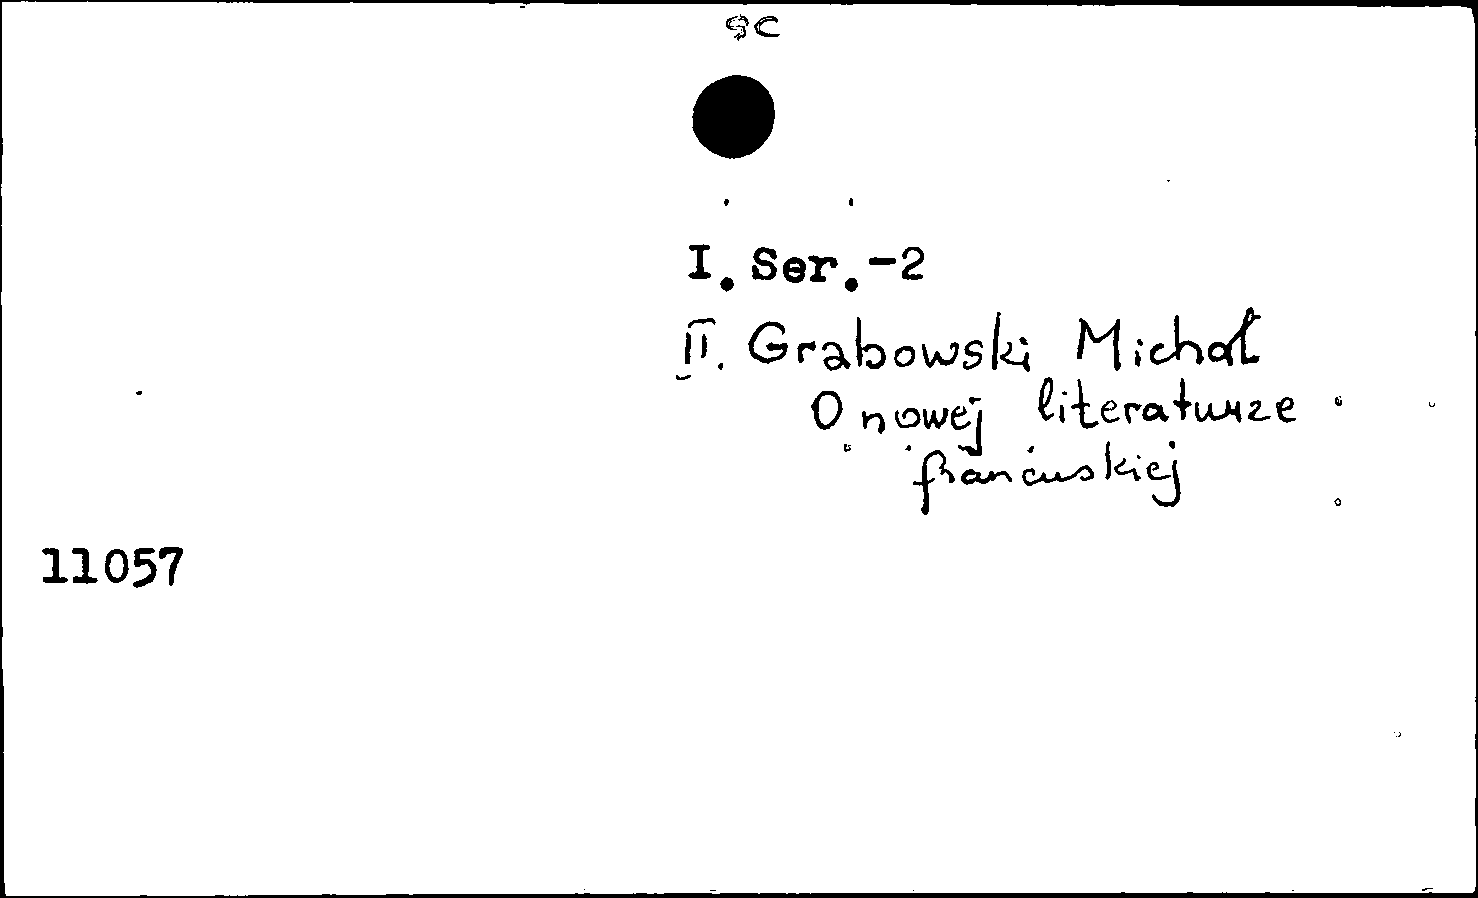 sc
I. Ser.-2
II. Grabowski Michał
O nowej literaturze
francuskiej
11057